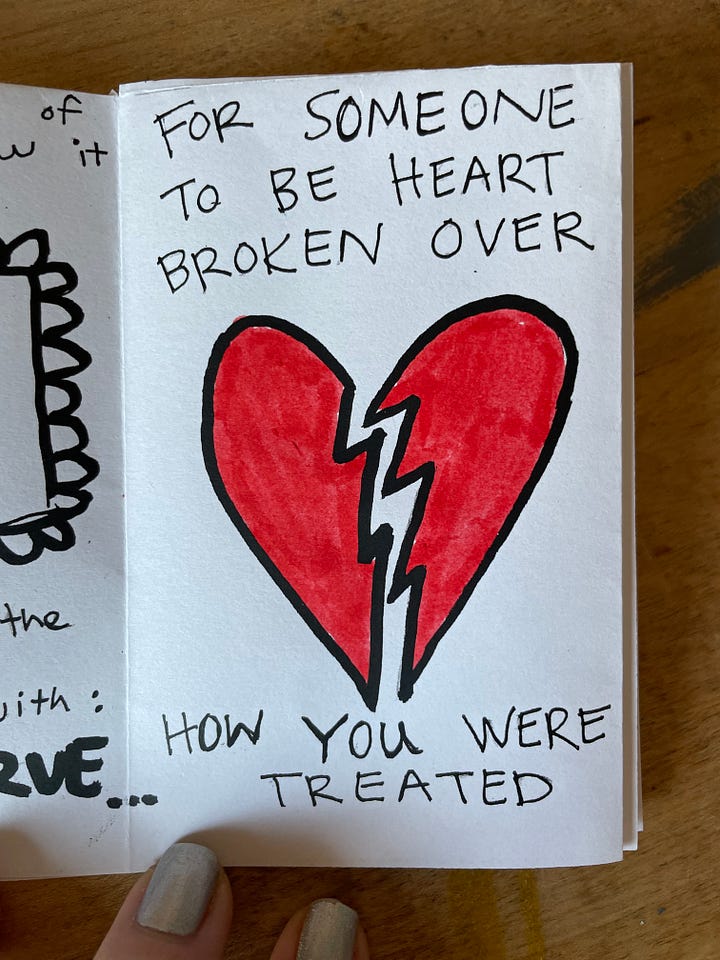 of
it
the
with:
RVE...
FOR SOMEONE
TO BE HEART
BROKEN OVER
HOW YOU WERE
TREATED